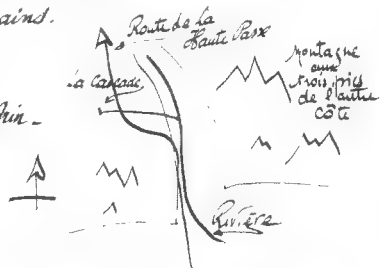 ains.
Route de la
Haute Passe
La Cascade
Montagne
aux
trois pics
de l'autre
côté
Rivière